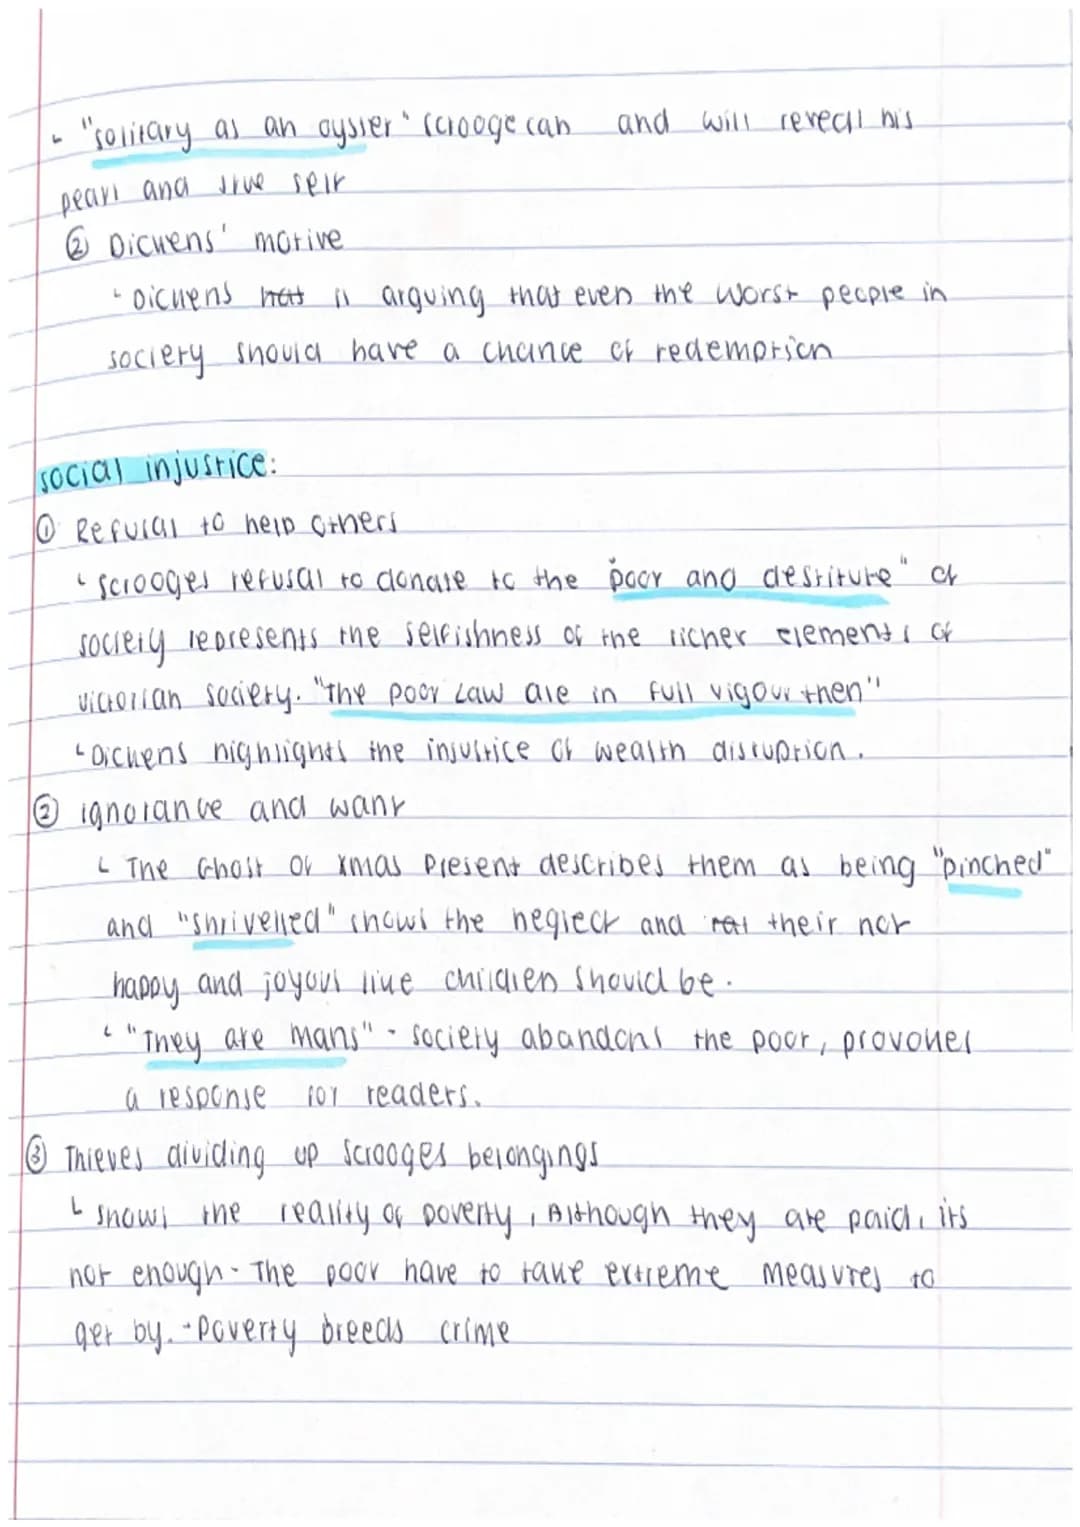 - "solitary as an oyster" Scrooge can and will reveal his
pearl and true self
② Dickens' motive
- Dickens is arguing that even the worst people in
society should have a chance of redemption
social injustice:
① Refusal to help others
- Scrooges refusal to donate to the "poor and destitute" of
society represents the selfishness of the richer elements of
victorian society. "The poor Law are in full vigour then"
- Dickens highlights the injustice of wealth disruption.
② ignorance and want
- The Ghost of xmas Present describes them as being "pinched"
and "shrivelled" shows the neglect and their not
happy and joyous like children should be.
- "They are mans" - society abandons the poor, provokes
a response for readers.
③ Thieves dividing up Scrooges belongings
- shows the reality of poverty, Although they are paid, its
not enough - The poor have to take extreme measures to
get by. - Poverty breeds crime